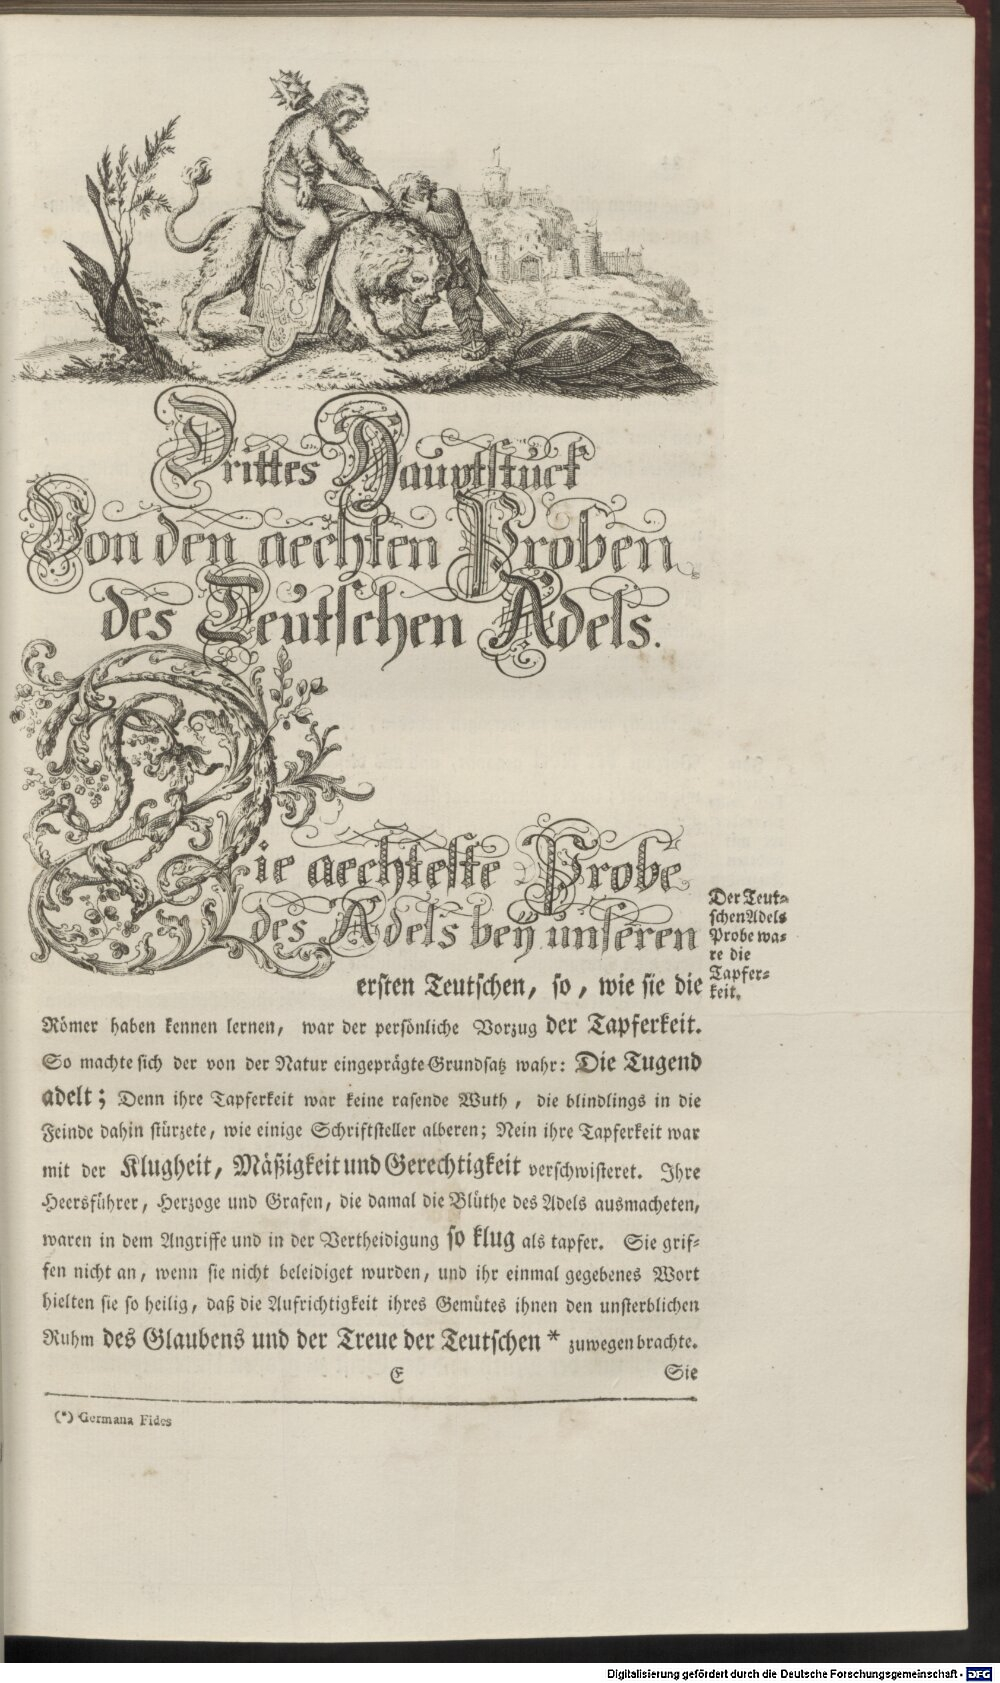 Drittes Hauptstück
Von den aechten Proben
des Teutschen Adels.
Die aechteste Probe
des Adels beÿ unseren
ersten Teutschen, so, wie sie die
Der Teut-
schen Adels
Probe wa-
re die
Tapfer-
keit.
Römer haben kennen lernen, war der persönliche Vorzug der Tapferkeit.
So machte sich der von der Natur eingeprägte Grundsatz wahr: Die Tugend
adelt; Denn ihre Tapferkeit war keine rasende Wuth, die blindlings in die
Feinde dahin stürzete, wie einige Schriftsteller alberen; Nein ihre Tapferkeit war
mit der Klugheit, Mäßigkeit und Gerechtigkeit verschwisteret. Ihre
Heersführer, Herzoge und Grafen, die damal die Blüthe des Adels ausmacheten,
waren in dem Angriffe und in der Vertheidigung so klug als tapfer. Sie grif-
fen nicht an, wenn sie nicht beleidiget wurden, und ihr einmal gegebenes Wort
hielten sie so heilig, daß die Aufrichtigkeit ihres Gemütes ihnen den unsterblichen
Ruhm des Glaubens und der Treue der Teutschen * zuwegen brachte.
E Sie
(*) Germana Fides
Digitalisierung gefördert durch die Deutsche Forschungsgemeinschaft - DFG